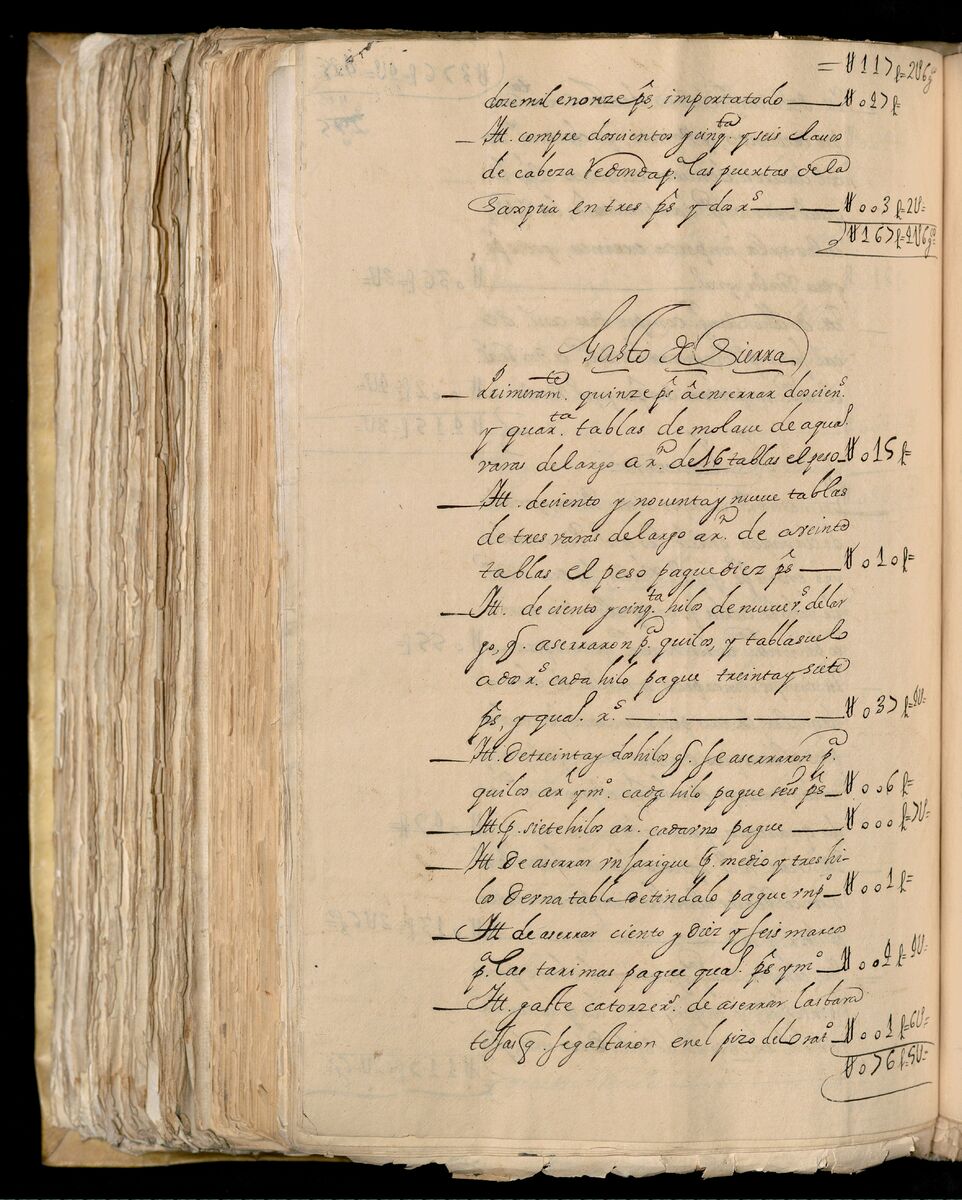 = U117p=2U6g
doze mil e nonze ps, importa todo — U027p
— Itt. compre doscientos y cinq.ta y seis clauos
de cabeza redonda p.a las puertas de la
Saxptia en tres ps y dos rs — — U003p=2U=
Gasto de Sierra
— Primeram.te quinze ps â enserrar doscien.s
y quar.ta tablas de molaue de a qual.
varas de largo a rn. de 16 tablas el peso — U015p=
— Itt. de ciento y nouenta y nueue tablas
de tres varas de largo a rn. de a veinte
tablas el peso pague diez ps — U010p=
— Itt. de ciento y cinq.ta hilos de nueue rs. de lar
go, q. aserraron p.a quilos, y tablasuelo
a dos rs. cada hilo pague treinta y siete
ps, y qual. rs. — — — — U037p=
— Itt. de treinta y dos hilos q. se aserraron p.a
quilos a rl y mo. cada hilo pague seis ps — U006p=
— Itt. p. siete hilos a rl. cada vno pague — U000p=7U=
— Itt de aserrar vn farigue p. medio y tres hi-
los de vna tabla de tindalo pague vn po — U001p=
— Itt de aserrar ciento y diez y seis marcos
p.a las tarimas pague qual. ps y mo —
— Itt. gaste catorze rs. de aserrar las bara
tejas q. se gastaron en el pizo del Orat.o — U001p=6U=